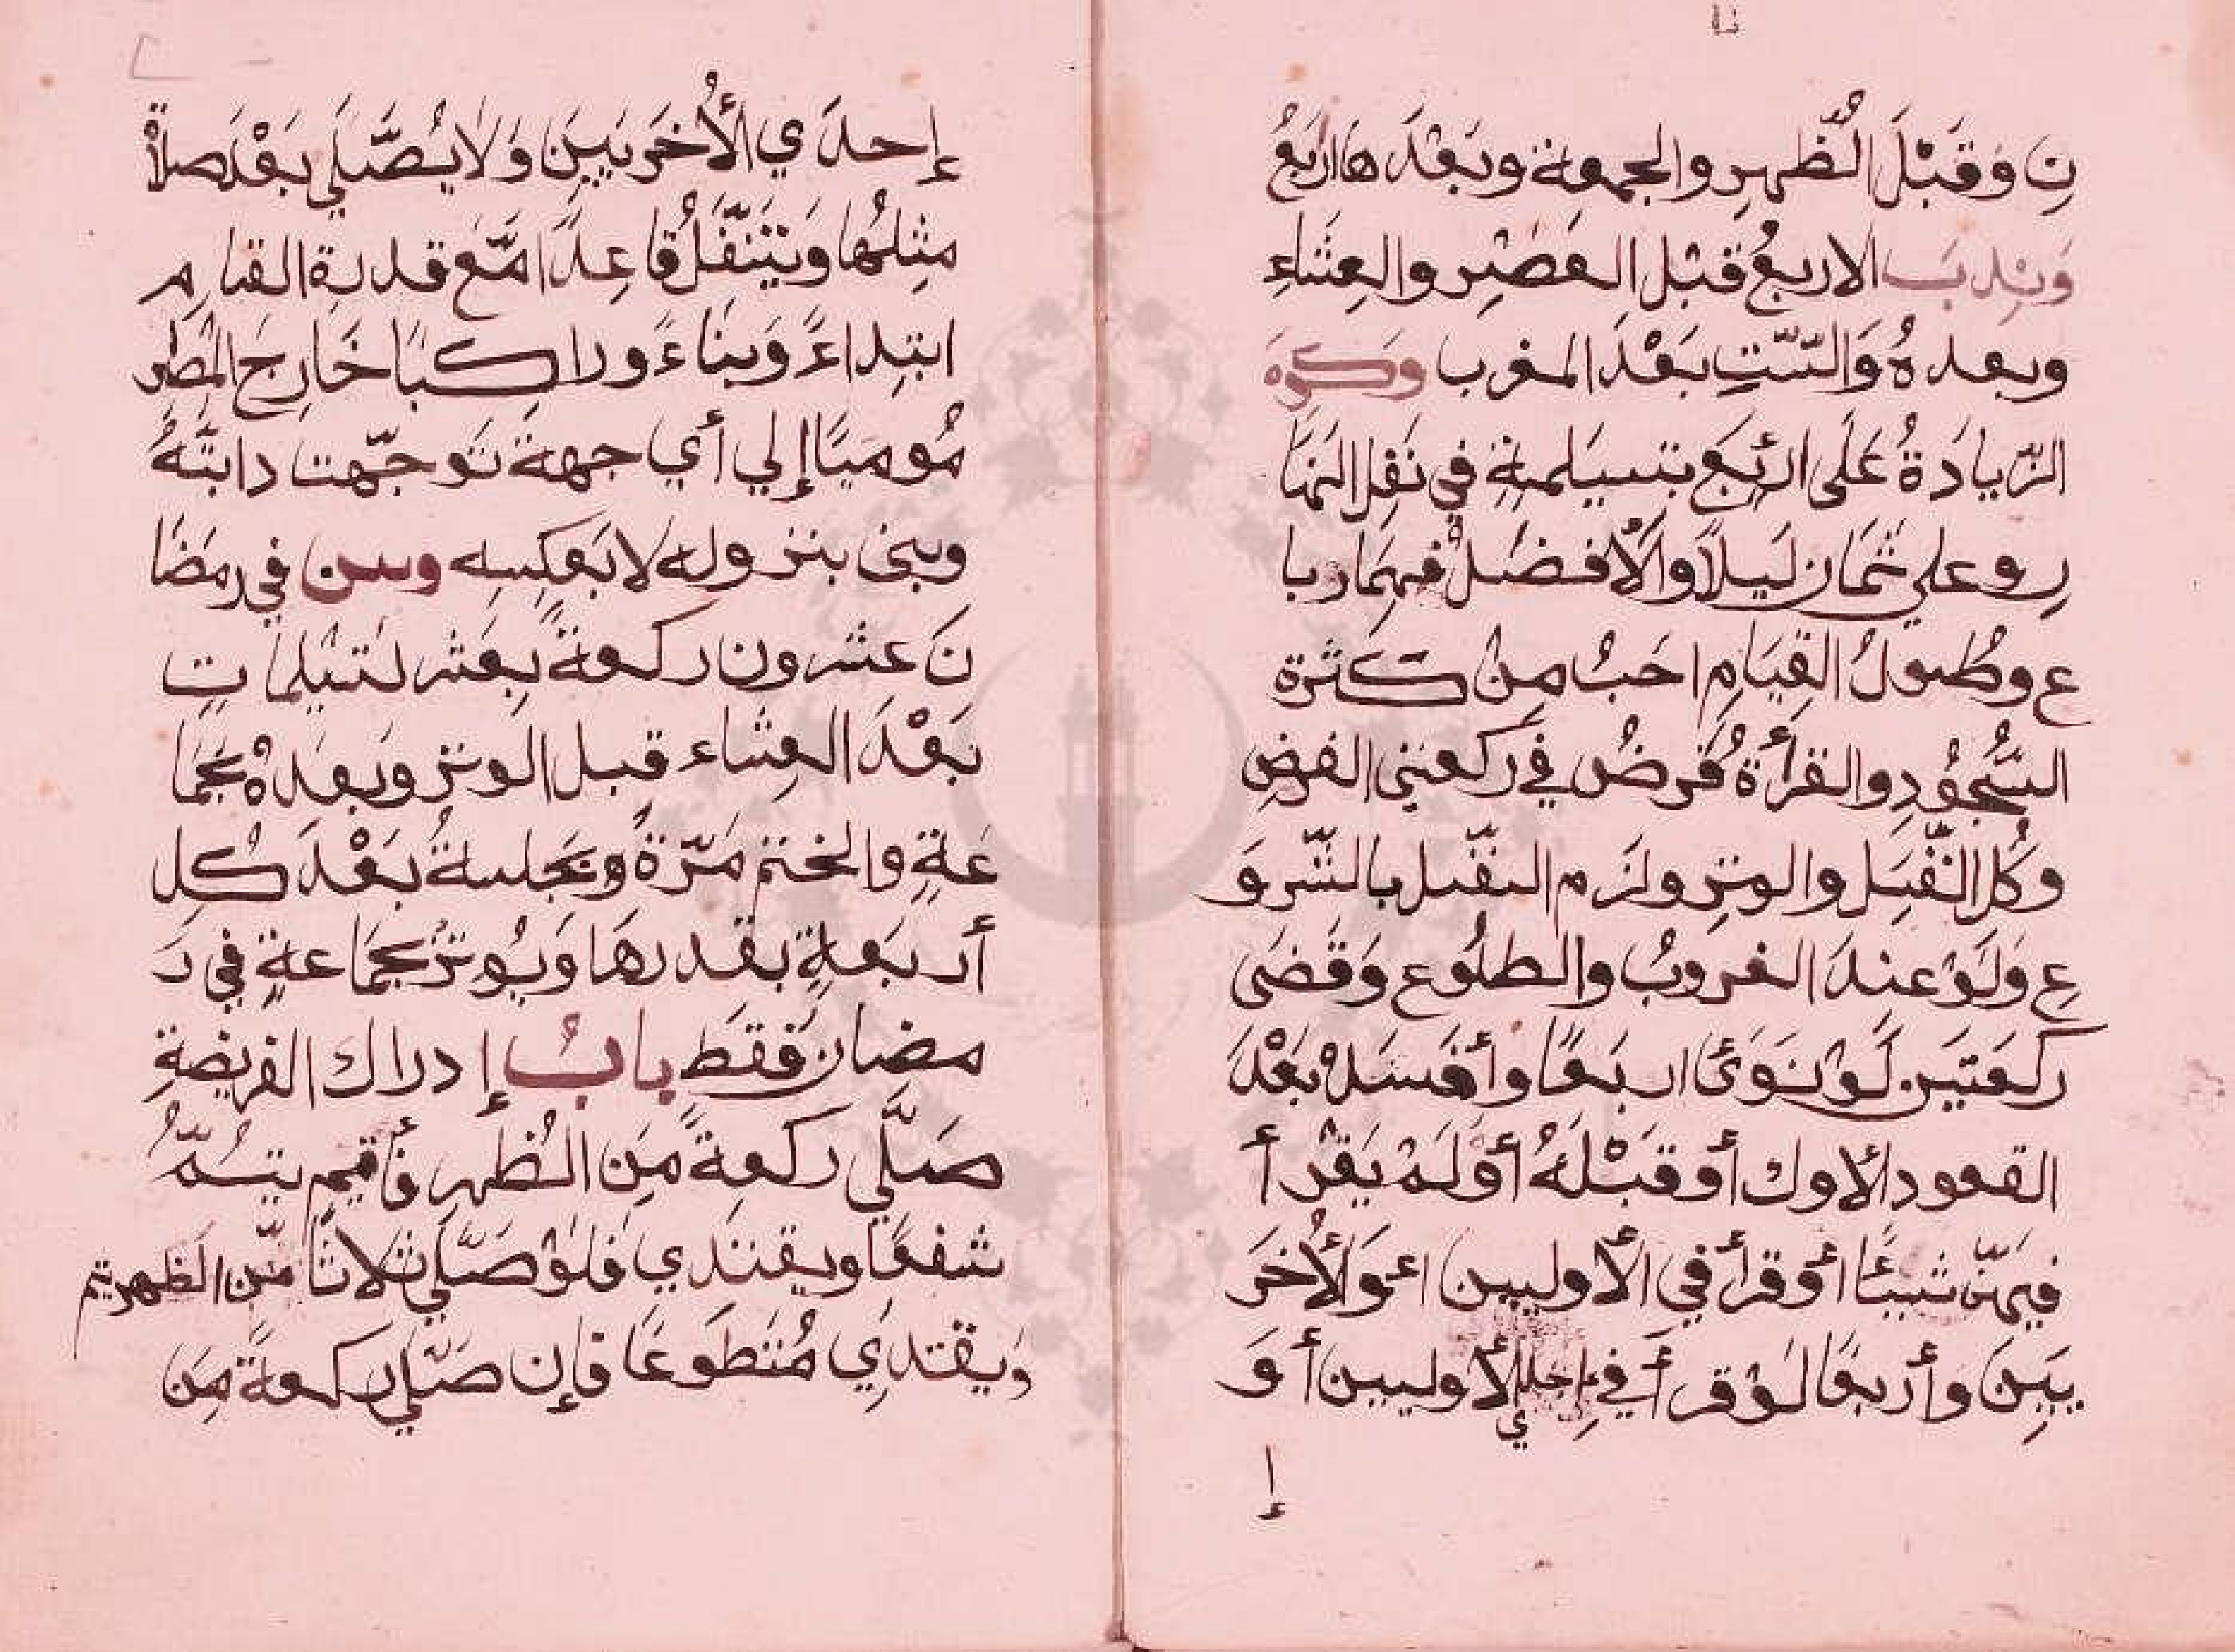 نِ وَقَبْلَ الظُّهرِ والجمعة وبَعْدَ هَا ارْبَعُ
وَنِدبَ الاربعُ قَبْل العَصْرِ والعِشَاءِ
وبعدهُ وَالسِّتِّ بَعْدَ المغرب وَكُرِهَ
الزّيادَةُ عَلَى ارْبَعٍ بتسيلمةٍ في نَفْلِ النَهَا
رِ وعلي ثمَان لَيلاً والأَفضَلُ فيهِمَا ربا
ع وطُولُ القِيَامِ احَبُّ مِنْ كَثرة
السُّجُودِ والقرأةُ فَرضُ في رَكعتي الفرضِ
وَكُل النَّفْلِ والوِترِ ولزَم النفّل بالشّروَ
عِ وَلَوْ عندَ الغروبُ والطلُوع وَقَضَى
ركعَتَين لَوْ نَوَىَ اربَعًا وأَفسَدْ بَعْدَ
القعود الأول أو قَبْلَهُ أوْ لَمْ يَقْرأ
فيهنّ شيئًا أوْ قرأ في الأوليين اوَ الأُخرَ
يَيِنَ وَأرْبعًا لوْ قرأ في إحدي الأوليين أوَ
إ
إحدَي الأُخرَيَيِنَ وَلا يُصَّلي بَعْدَ صلاةٍ
مثِلهُا ويَتَنَفّلُ قاعِدَا مَّع قدرة القيامِ
ابتِداءً وَبِنَاءً وراكبًا خَارِجَ المِصْرِ
مُومِيًا إلي أي جهة تَوجّهت دابتَّهُ
وبَنى بنزوله لا بَعكِسِه وسن في رمَضَا
نَ عشرون ركعةً بِعَشْر لتسْيلماتِ
بَعْدَ العِشَاء قِبل الوترِ وبَعدَهُ بجَمَا
عَةٍ والختمِ مَرّةً وبجَلسةُ بَعْدَ كُل
أربَعةٍ بقَدرهَا وَيُوترُ بجَماعةٍ في رَ
مضان فَقَط بابُ إدراك الفريضةِ
صَلَّي ركعةً مِنَ الظُهرِ فأقيم يتمُّ
شفعًا ويقتدي فلَوْ صَلّي ثلاثًا مّن الظهر يتم
وَيقْتدِي مُتَطَوعًا فإن صَلّي ركعةً مِنَ